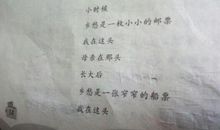 小时候
乡愁是一枚小小的邮票
我在这头
母亲在那头
长大后
乡愁是一张窄窄的船票
我在这头